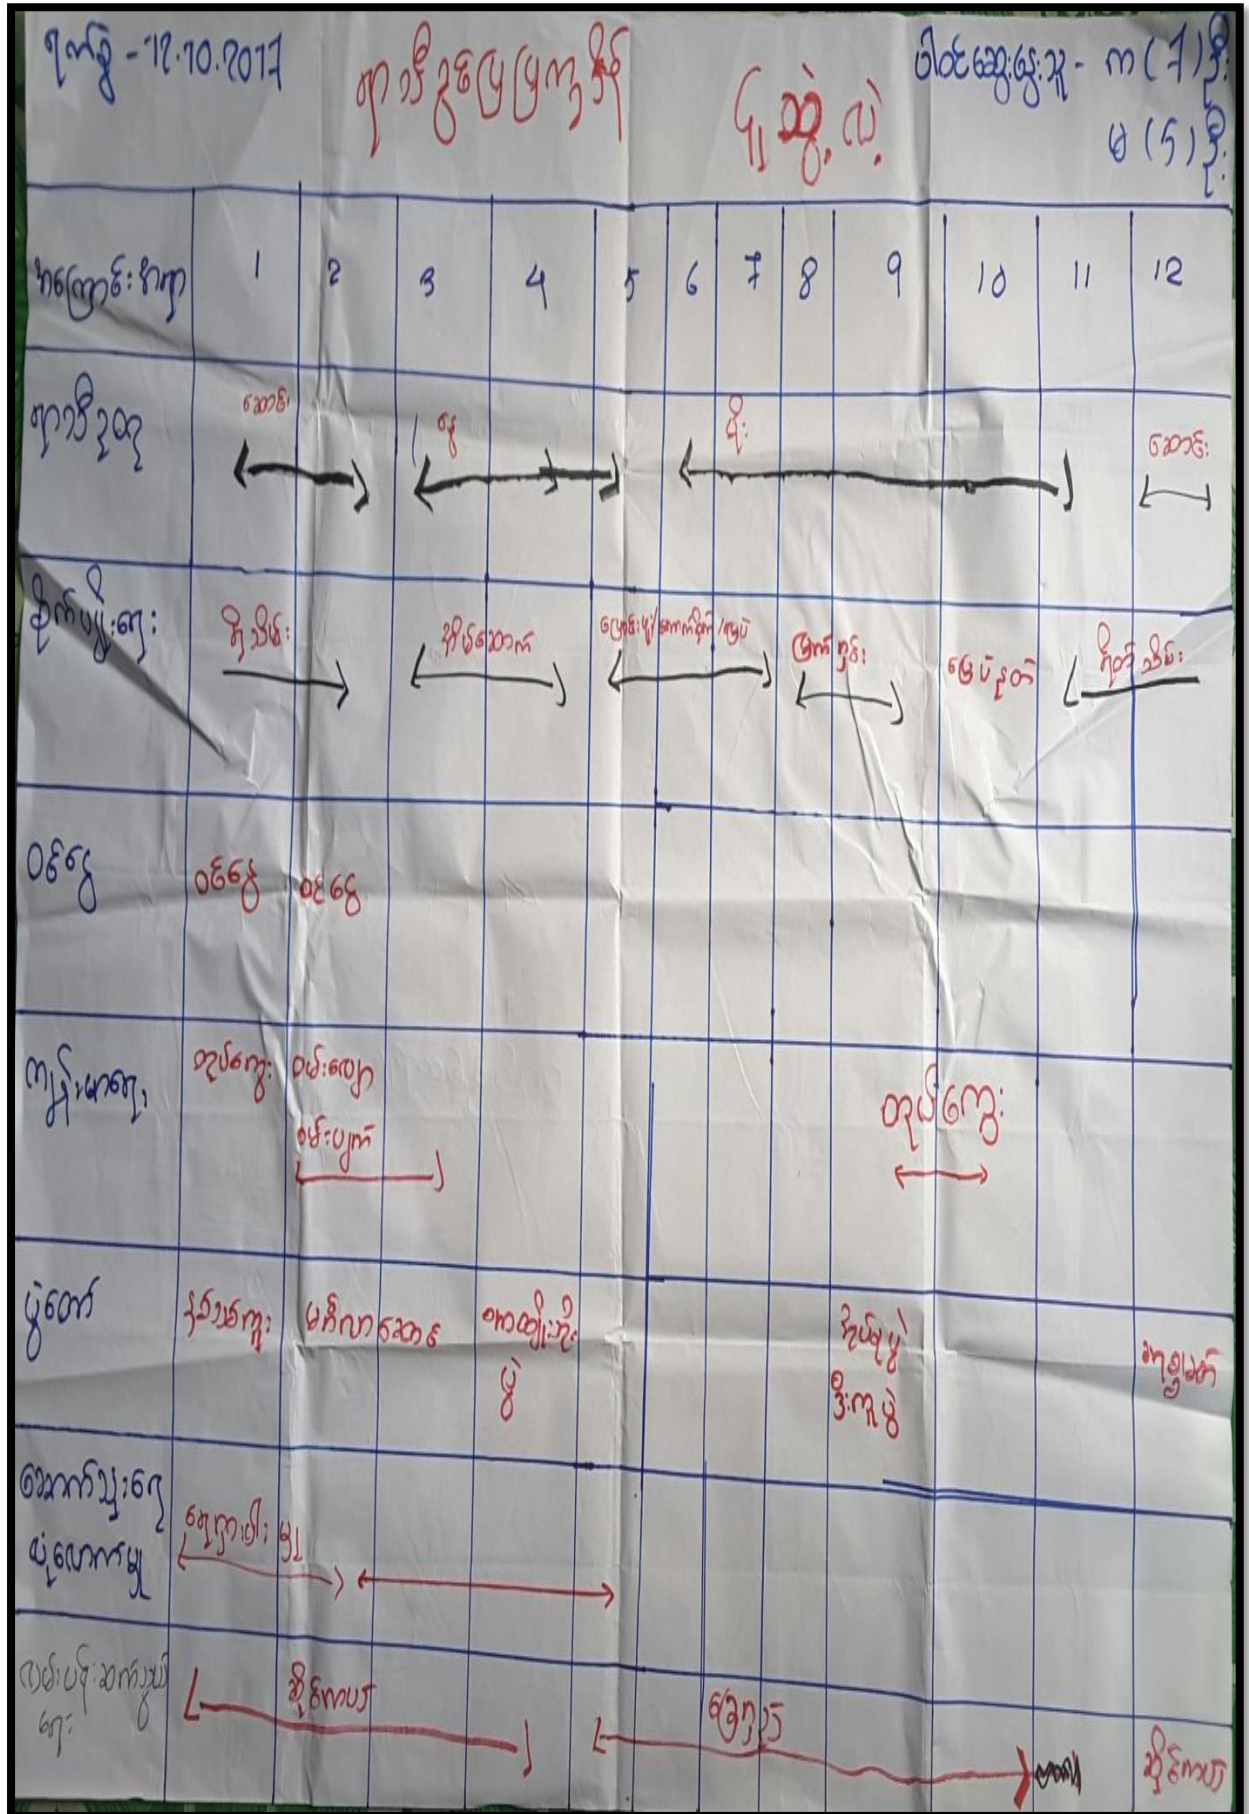 ရက်စွဲ - 12.10.2017
ရာသီခွင်ပြပြက္ခဒိန်
ပါဝင်ဆွေးနွေးသူ - ကျ (7) ဦး
မ (5) ဦး
အကြောင်းအရာ 1 2 3 4 5 6 7 8 9 10 11 12
ရာသီဥတု ဆောင်း နွေ မိုး ဆောင်း
စိုက်ပျိုးရေး ရိတ်သိမ်း အိမ်ဆောက် မြက်ရှင်း မြေပဲနုတ် ရိတ်သိမ်း
ဝင်ငွေ ဝင်ငွေ ဝင်ငွေ
ကျန်းမာရေး တုပ်ကွေး ဝမ်းလျော တုပ်ကွေး
ဝမ်းပျက်
ပွဲတော် နှစ်သစ်ကူး မင်္ဂလာဆောင်
ပွဲ
ခရစ္စမတ်
သောက်သုံးရေ
လုံလောက်မှု ရေရှားပါးမှု
လမ်းပန်းဆက်သွယ်
ရေး ဆိုင်ကယ် ခြေကျင် ဆိုင်ကယ်